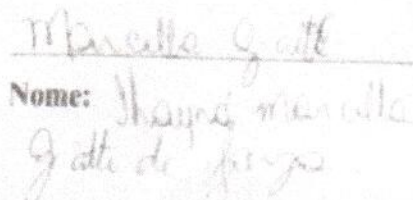 Marcella Gatti
Nome: Thayná Marcella
Gatti de